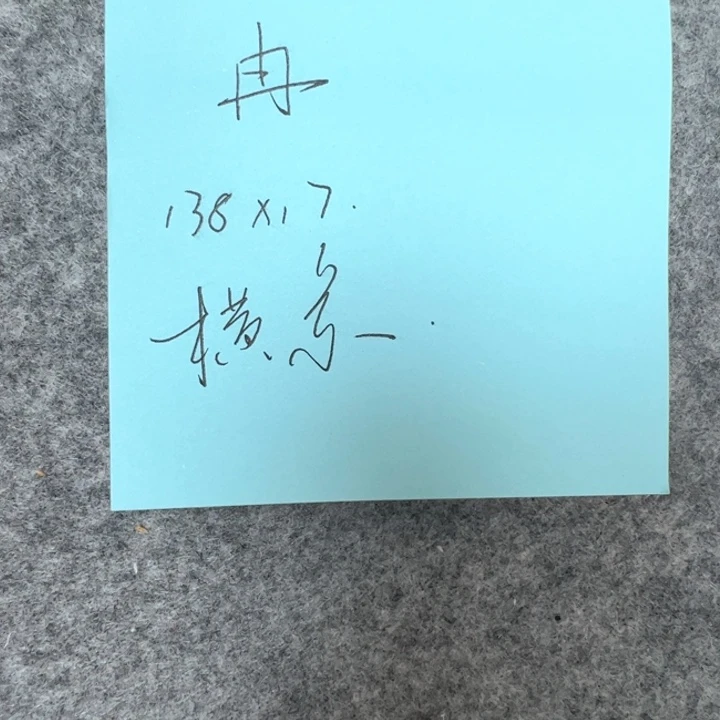 冉
138×17.
横点一.